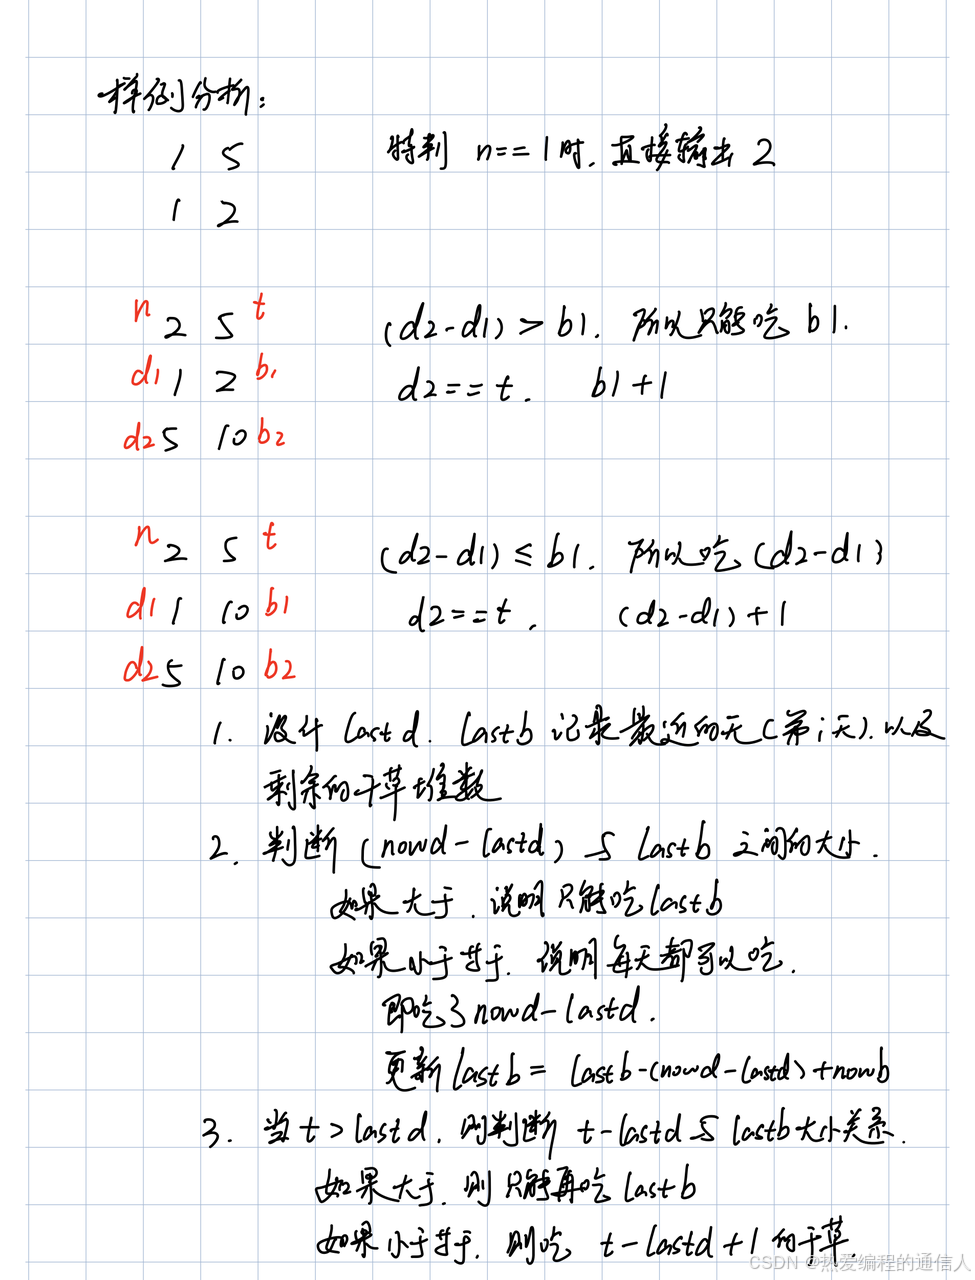 样例分析:
1 5 特判 n==1时. 直接输出 2
1 2
n 2 5 t (d2-d1) > b1. 所以只能吃 b1.
d1 1 2 b1 d2==t. b1+1
d2 5 10 b2
n 2 5 t (d2-d1) ≤ b1. 所以吃 (d2-d1)
d1 1 10 b1 d2==t. (d2-d1)+1
d2 5 10 b2
1. 设计 lastd. lastb 记录最近的天(第i天). 以及
剩余的干草堆数
2. 判断 (nowd-lastd) 与 lastb 之间的大小.
如果大于. 说明只能吃lastb
如果小于等于. 说明每天都可以吃.
即吃了nowd-lastd.
更新lastb= lastb-(nowd-lastd)+nowb
3. 当t>lastd. 则判断 t-lastd与lastb大小关系.
如果大于. 则只能再吃lastb
如果小于等于. 则吃 t-lastd+1的干草.
CSDN @热爱编程的通信人